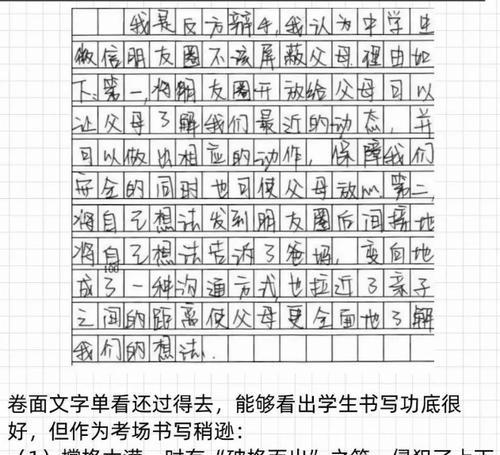 我是反方辩手,我认为中学生
微信朋友圈不该屏蔽父母理由如
下:第一,将朋友圈开放给父母可以
让父母了解我们最近的动态,并
可以做出相应的动作,保障我们
安全的同时也可使父母放心.第二,
将自己想法发到朋友圈后间接地
将自己想法告诉了爸妈,变向地
100
成了一种沟通方式,也拉近了亲子
之间的距离使父母更全面地了解
我们的想法.
卷面文字单看还过得去,能够看出学生书写功底很
好,但作为考场书写稍逊: